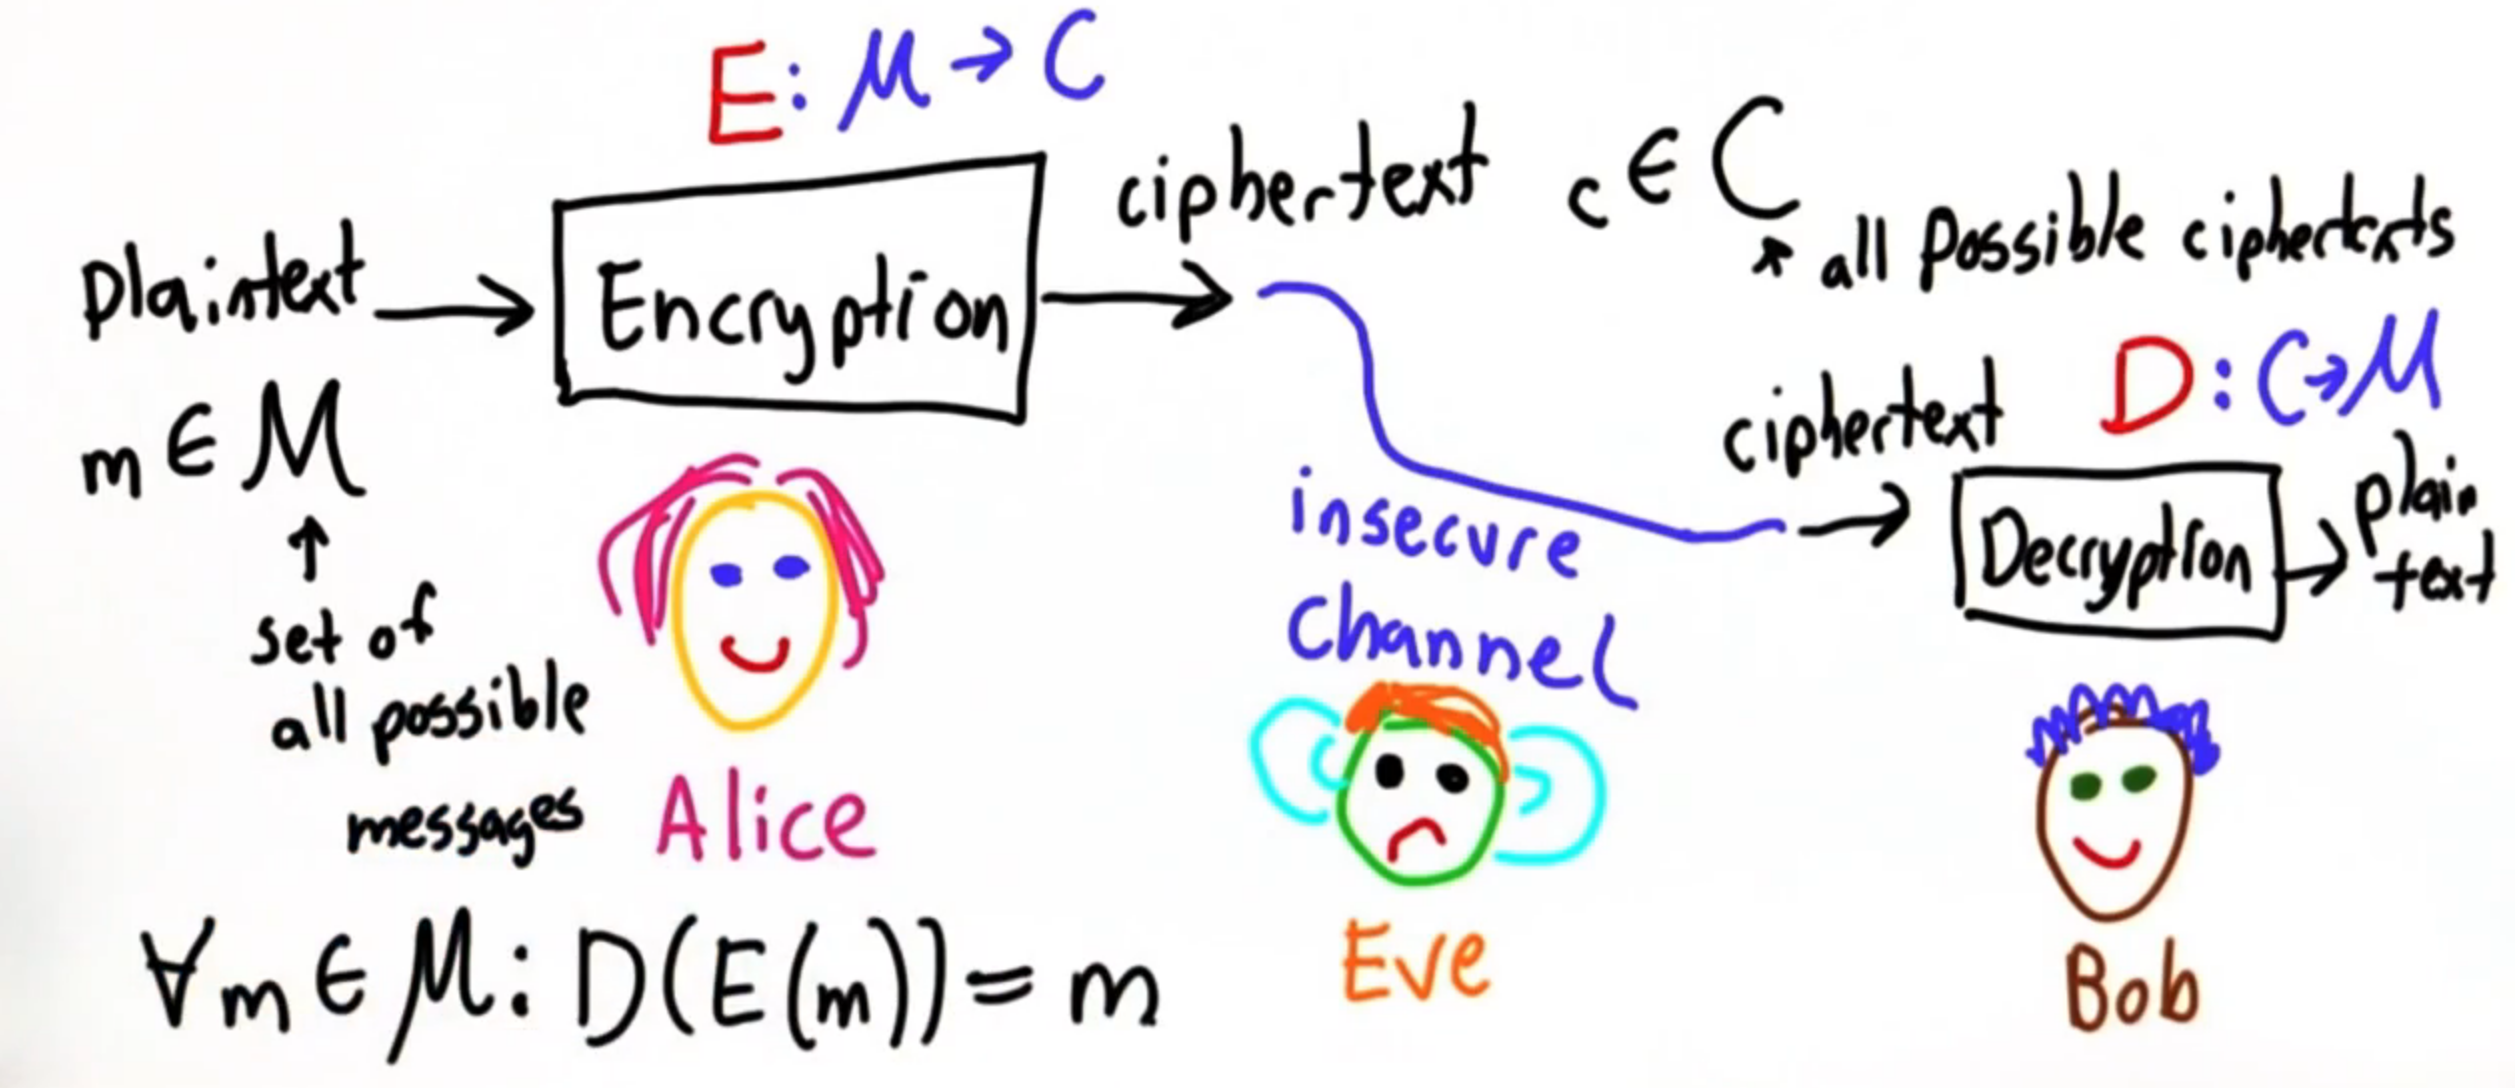 E: M → C
Plaintext → Encryption → ciphertext c ∈ C
all possible ciphertexts
m ∈ M
↑
set of
all possible
messages
Alice
insecure
channel
Eve
D: C → M
ciphertext → Decryption → plain
text
Bob
∀m ∈ M: D(E(m)) = m